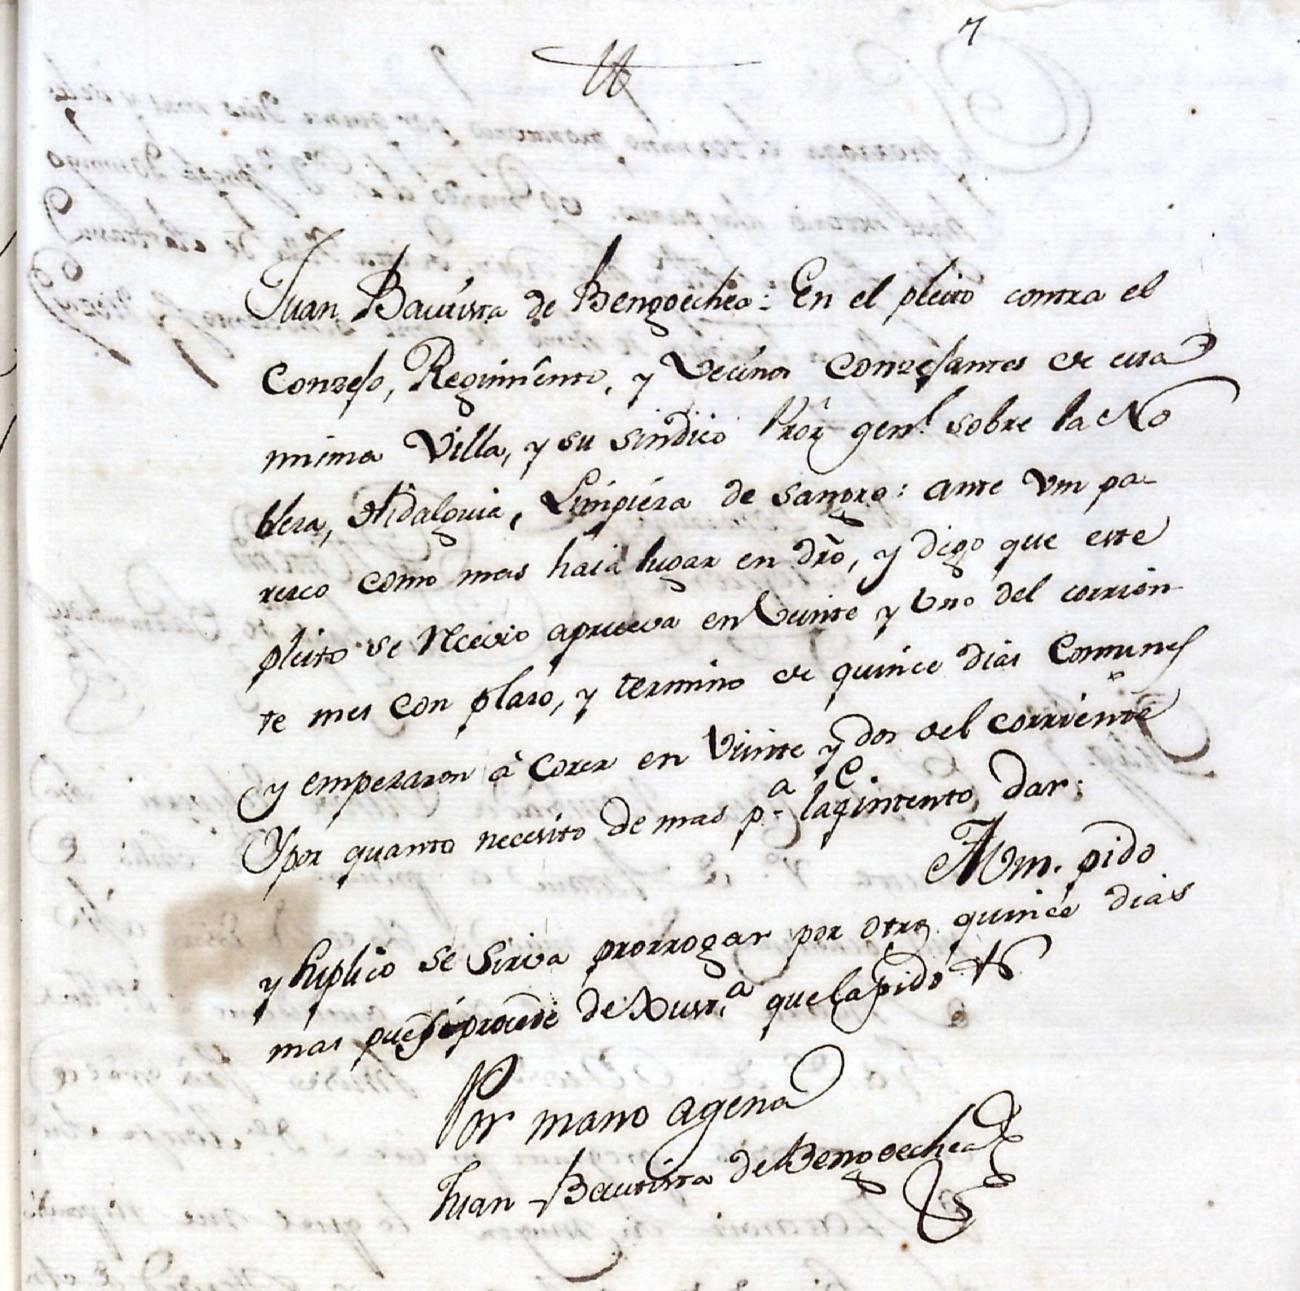 7
Juan Bautista de Bengoechea: En el pleito contra el
Conzejo, Regimiento, y Vecinos Conzejantes de esta
misma Villa, y su sindico Pror genl. sobre la No
bleza, Hidalguia, Limpieza de sangre: ante Vm pa-
rezco como mas haia lugar en dro, y digo que este
pleito se Recivio aprueva en Veinte y Uno del corrien
te mes con plazo, y termino de quince dias Comunes
y empezaron à Correr en Veinte y dos del corriente
Y por quanto necesito de mas pa. la q intento dar:
A Vm. pido
y suplico se sirva prorrogar por otros quince dias
mas pues procede de Justa. que la pido &
Por mano agena
Juan Bautista de Bengoechea